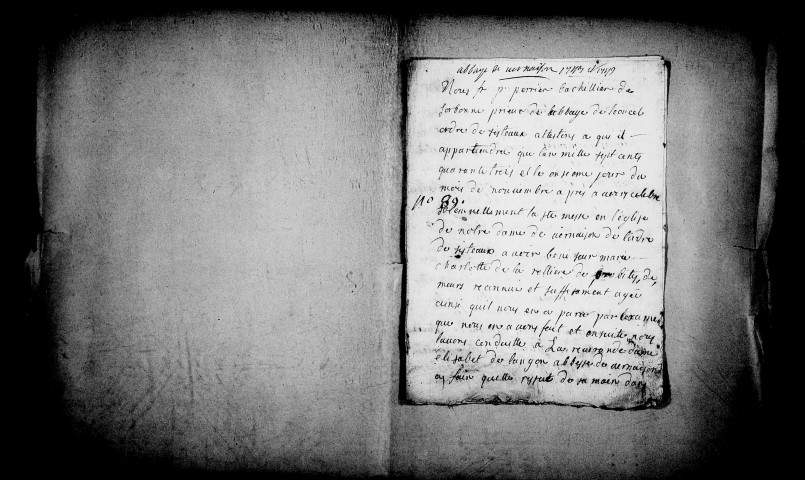 abbaye de vernaison 1743 et 1749
Nous f. p. perrier bachellier de
sorbonne prieur de labbaye de leoncel
ordre de sisteaux attestons a qui il
appartiendra que lan mille sept cents
quarante trois et le onsieme jour du
mois de nouvembre apres avoir celebré
No 89.
solemnellement la ste messe en leglise
de notre dame de vernaison de lordre
de sisteaux avoir beni sœur marie
charlotte de la rolliere de probité, de
meurs reconnue et suffisament agée
ainsi quil nous en a paru par lexamen
que nous en avons fait et ensuite nous
lavons conduitte à La reverende dame
elisabet de langon abbesse de vernaison
afin quelle ressut de sa main dans